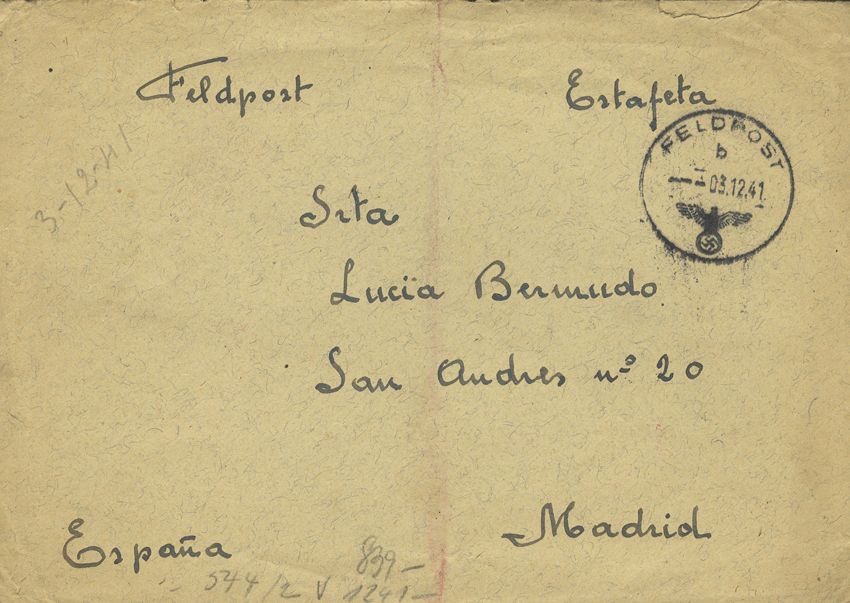 Feldpost Estafeta
FELDPOST
b
03.12.41
3-12-41
Srta
Lucïa Bermudo
San Andres nº 20
Madrid
España
839-
544/2 V 1241-